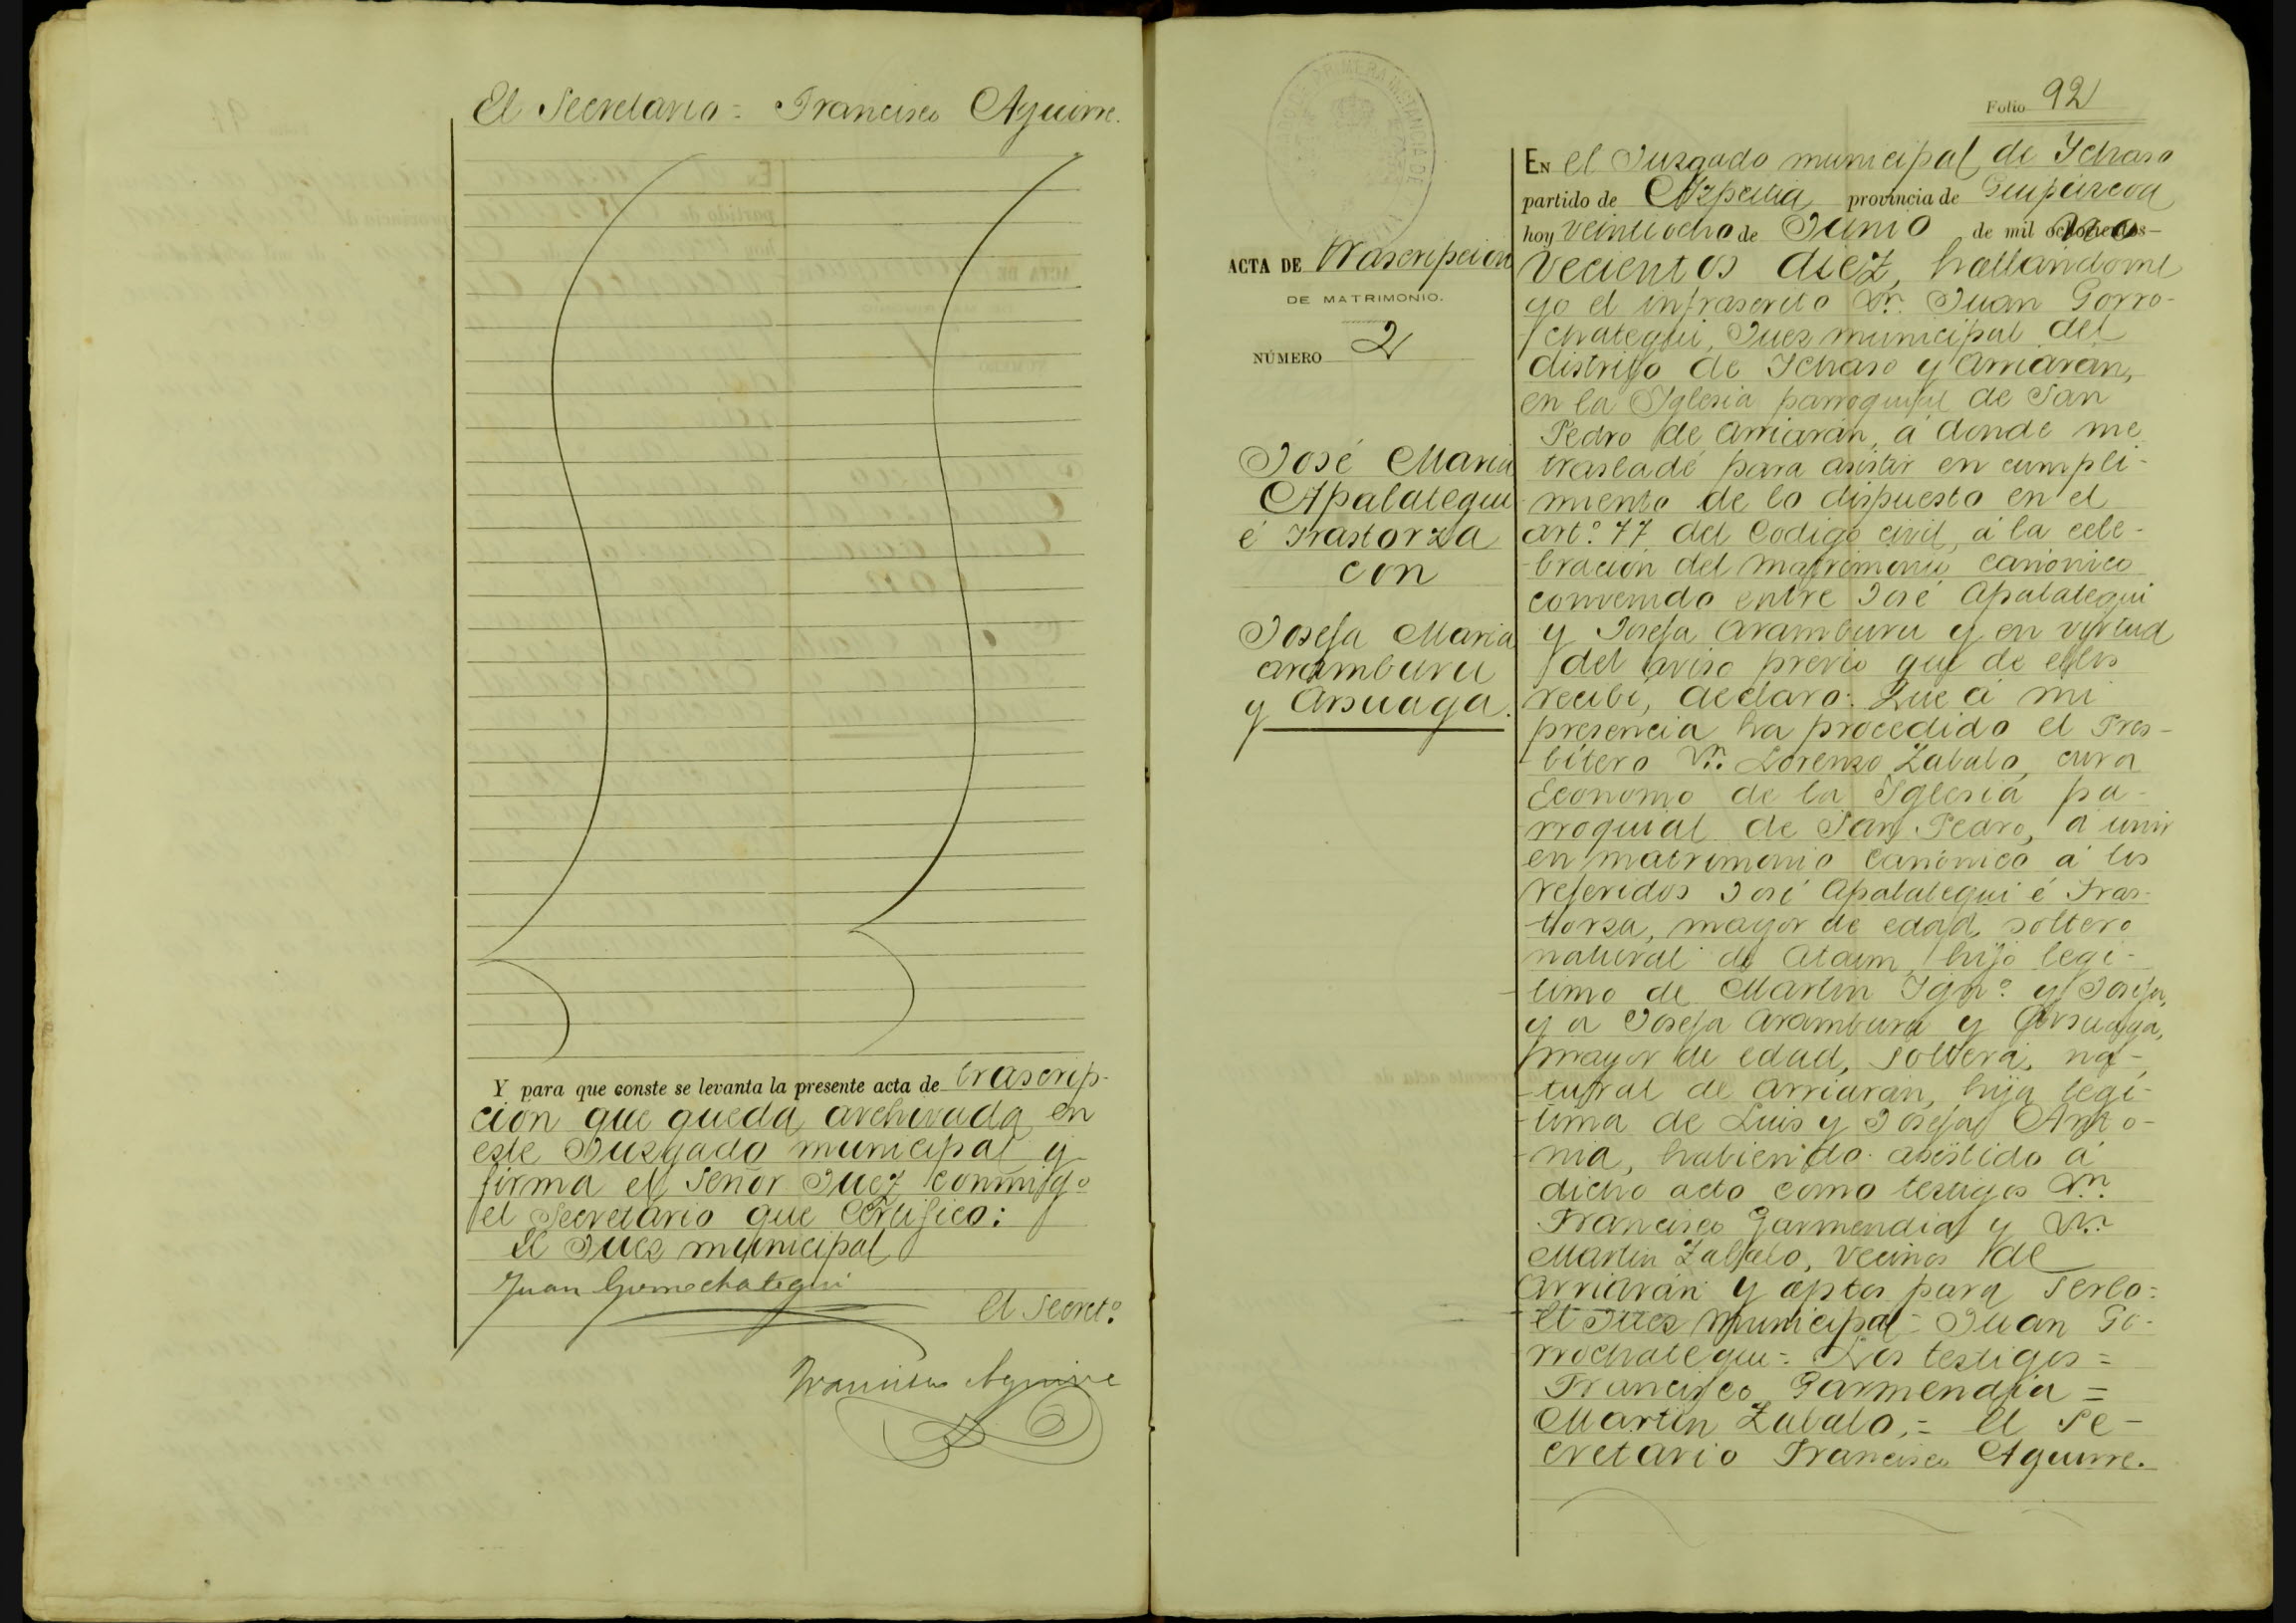 El Secretario = Francisco Aguirre.
Y para que conste se levanta la presente acta de trascrip-
ción que queda archivada en
este Juzgado municipal y
firma el Señor Juez conmigo
el Secretario que Certifico:
El Juez municipal
Juan Gorrochategui
El Secret.º
Francisco Aguirre
Folio 92
ACTA DE Trascripcion
DE MATRIMONIO.
NÚMERO 2
José Maria
Apalategui
é Irastorza
con
Josefa Maria
Aramburu
y Arsuaga.
EN el Juzgado municipal de Ychaso
partido de Azpeitia provincia de Guipúzcoa
hoy veintiocho de Junio de mil no-
vecientos diez, hallandome
yo el infrascrito Dn. Juan Gorro-
chategui, Juez municipal del
distrito de Ychaso y Arriarán,
en la Yglesia parroquial de San
Pedro de Arriarán, á donde me
trasladé para asistir en cumpli-
miento de lo dispuesto en el
art.º 77 del Codigo civil, á la cele-
bración del matrimonio canónico
convenido entre José Apalategui
y Josefa Aramburu y en virtud
del aviso previo que de ellos
recibí, declaro: Que á mi
presencia ha procedido el Pres-
bítero Dn. Lorenzo Zabalo, cura
Ecónomo de la Yglesia pa-
rroquial de San Pedro, á unir
en matrimonio canónico á los
referidos José Apalategui é Iras-
torza, mayor de edad, soltero
natural de Ataun, hijo legí-
timo de Martin Ign.º y Josefa,
y a Josefa Aramburu y Arsuaga,
mayor de edad, soltera, na-
tural de Arriarán, hija legí-
tima de Luis y Josefa Anto-
nia, habiendo asistido á
dicho acto como testigos Dn.
Francisco Garmendia y Dn.
Martin Zabalo, vecinos de
Arriarán y aptos para serlo =
El Juez municipal = Juan Go-
rrochategui = Los testigos =
Francisco Garmendia =
Martin Zabalo, = El Se-
cretario Francisco Aguirre.